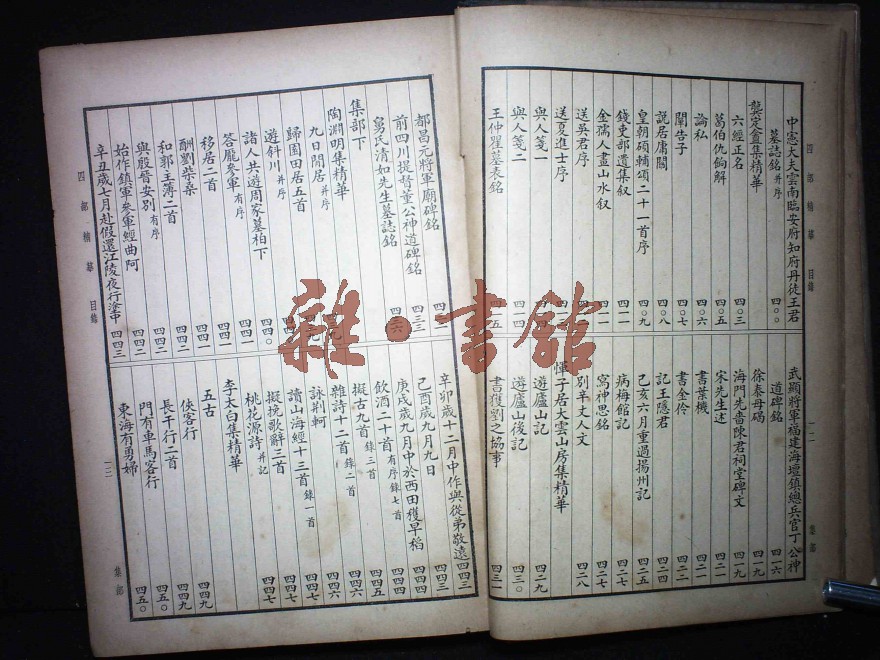 四部精華 目錄
中憲大夫雲南臨安府知府丹徒王君
墓誌銘 并序 四〇〇
龔定盦集精華
六經正名 四〇三
葛伯仇餉解 四〇五
論私 四〇六
闡告子 四〇七
說居庸關 四〇八
皇朝碩輔頌二十一首序 四〇九
錢吏部遺集叙 四一一
金孺人畫山水叙 四一一
送吳君序
送夏進士序
與人箋一
與人箋二 四一四
王仲瞿墓表銘 四一五
武顯將軍福建海壇鎮總兵官丁公神
道碑銘 四一六
徐泰母碣 四一九
海門先嗇陳君祠堂碑文 四一九
宋先生述 四二一
書葉機 四二一
書金伶 四二二
記王隱君 四二四
己亥六月重過揚州記 四二五
病梅館記 四二六
寫神思銘 四二七
別辛丈人文 四二八
惲子居大雲山房集精華
遊廬山記 四二九
遊廬山後記 四三〇
書獲劉之協事 四三一
集部
都昌元將軍廟碑銘 四三三
前四川提督董公神道碑銘
舅氏清如先生墓誌銘
集部下
陶淵明集精華
九日閒居 并序
歸園田居五首
遊斜川 并序 四四〇
諸人共遊周家墓柏下 四四一
答龐參軍 有序 四四一
移居二首 四四一
酬劉柴桑 四四二
和郭主簿二首 四四二
與殷晉安別 有序 四四二
始作鎮軍參軍經曲阿 四四二
辛丑歲七月赴假還江陵夜行塗中 四四三
辛卯歲十二月中作與從弟敬遠 四四三
己酉歲九月九日 四四三
庚戌歲九月中於西田穫早稻 四四四
飲酒二十首 有序錄七首 四四五
擬古九首 錄三首 四四六
雜詩十二首 錄二首 四四六
詠荆軻 四四七
讀山海經十三首 錄一首 四四七
擬挽歌辭三首 四四七
桃花源詩 并記 四四七
李太白集精華
五古 四四九
俠客行 四四九
長干行二首 四四九
門有車馬客行 四五〇
東海有勇婦 四五〇
四部精華 目錄
集部
雜·書館